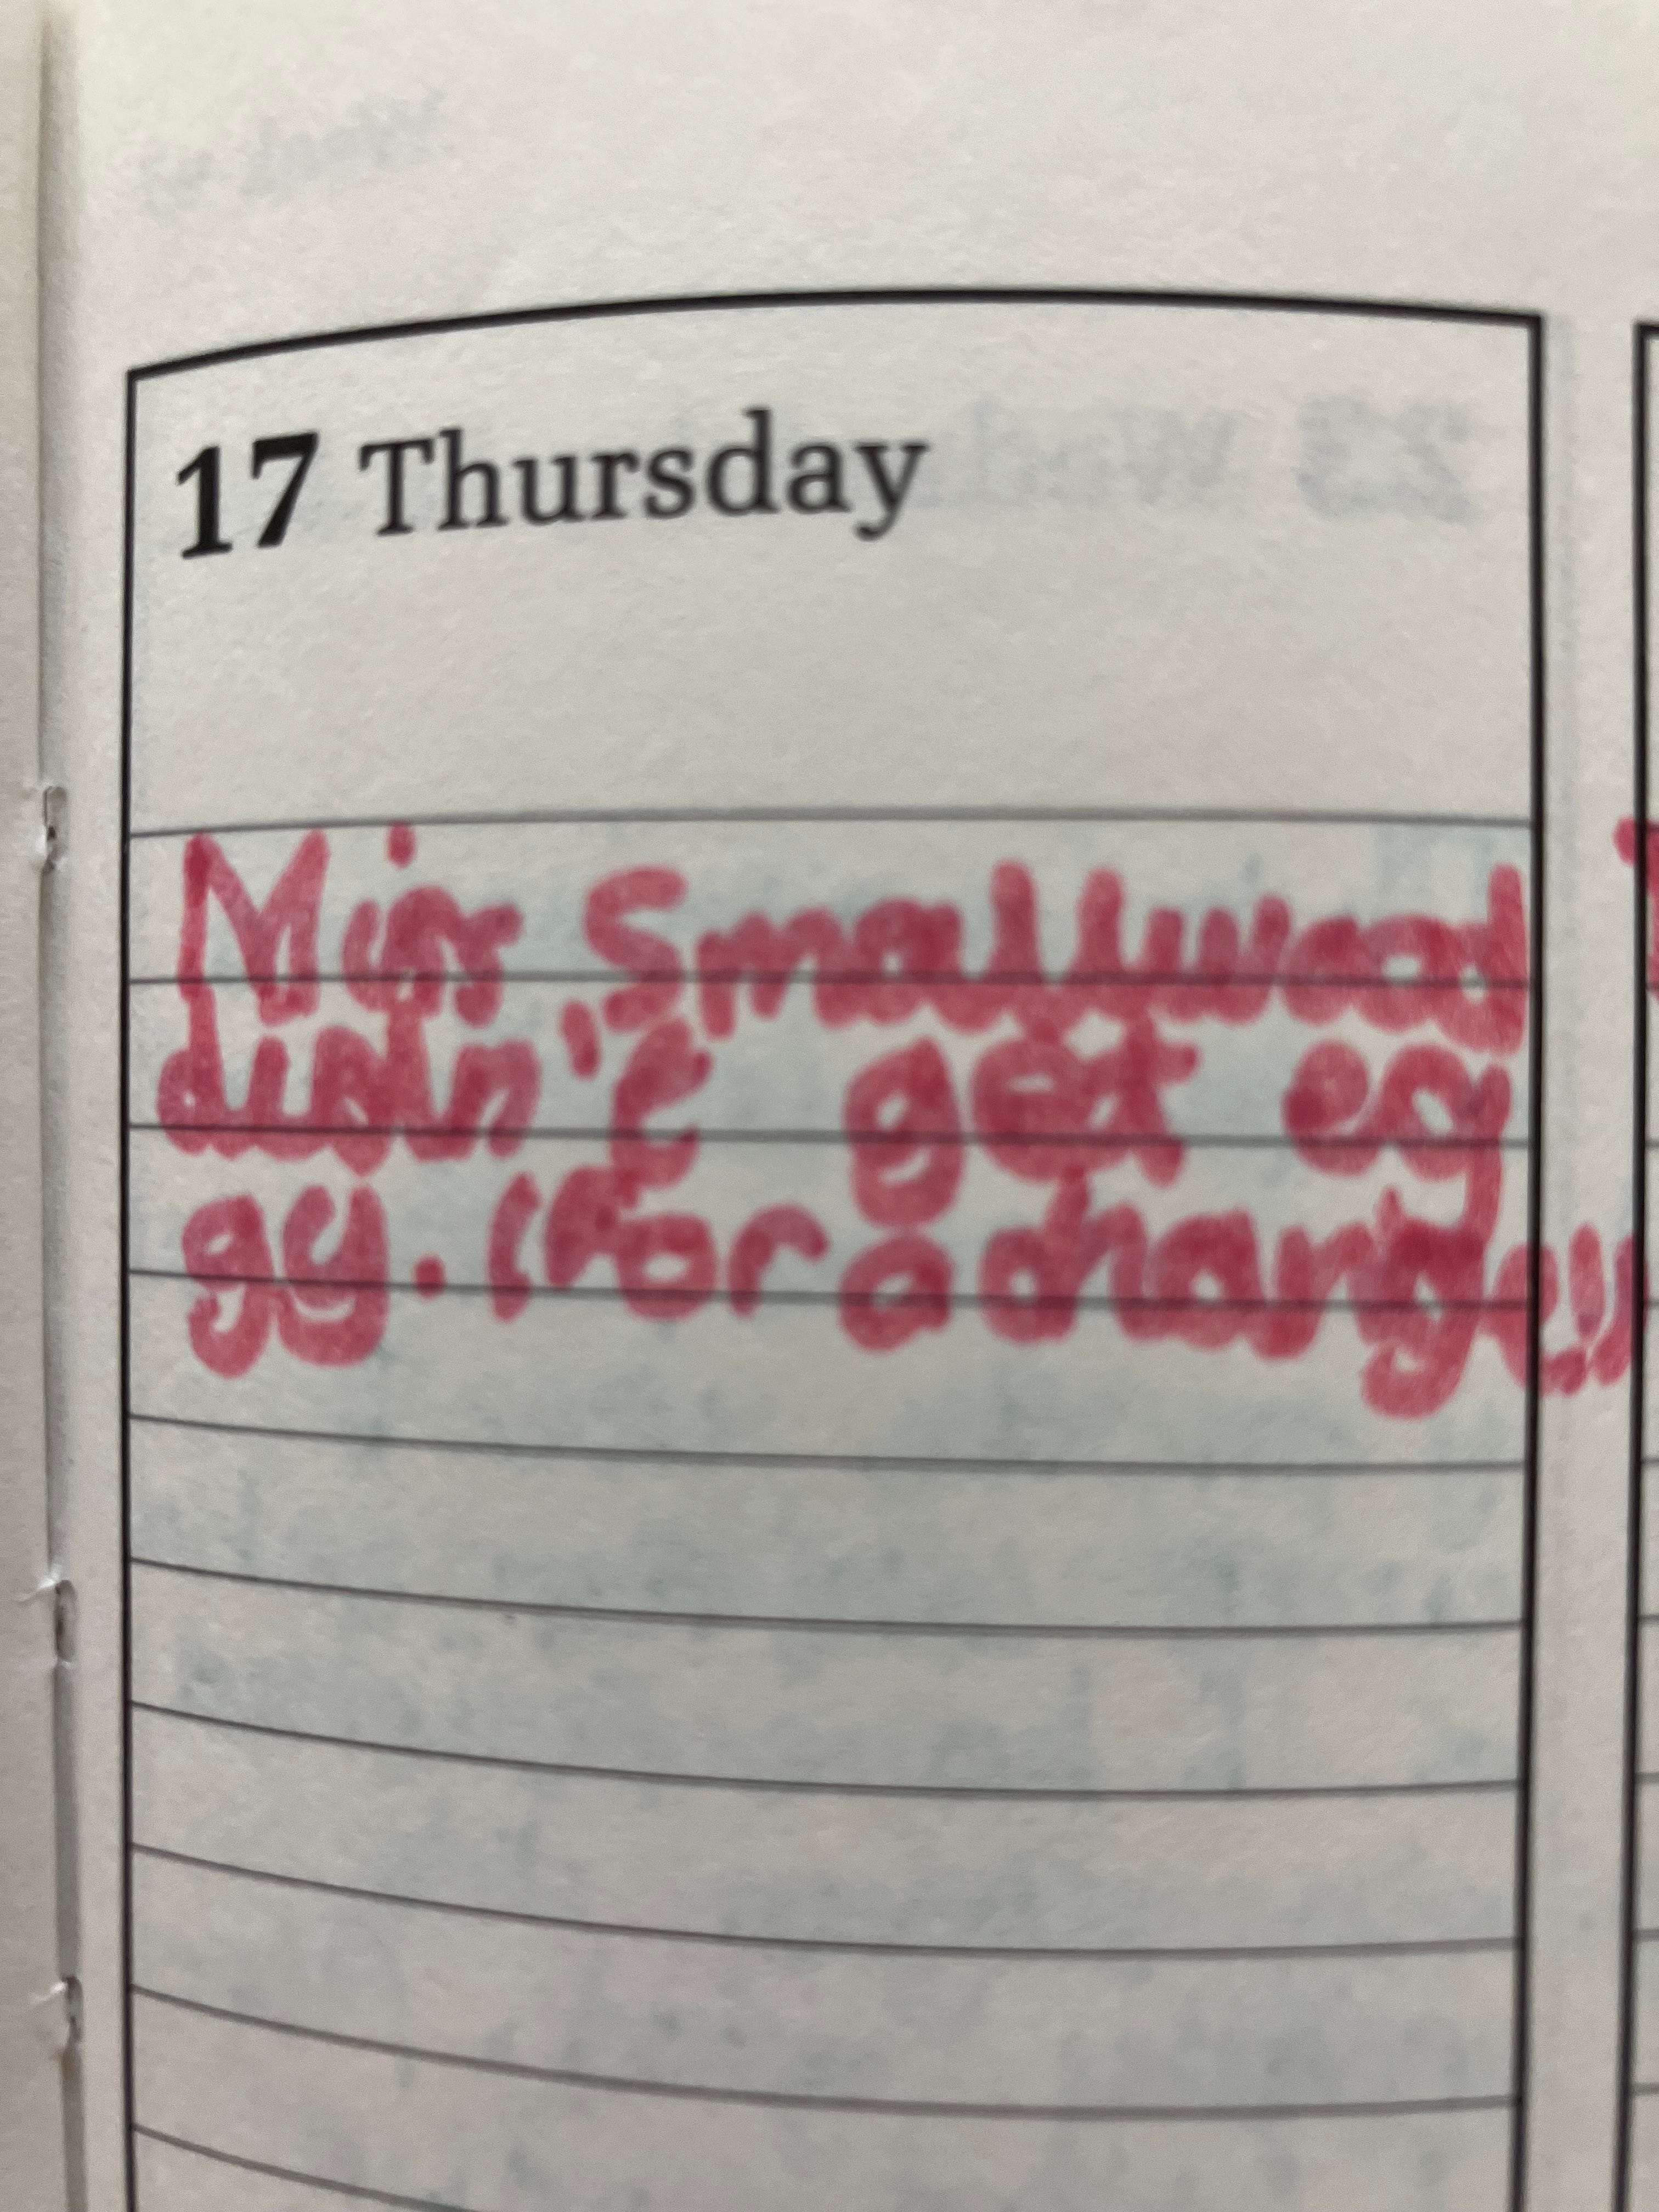 17 Thursday
Miss Smallwood
didn't get eg
gy. (For a change!)